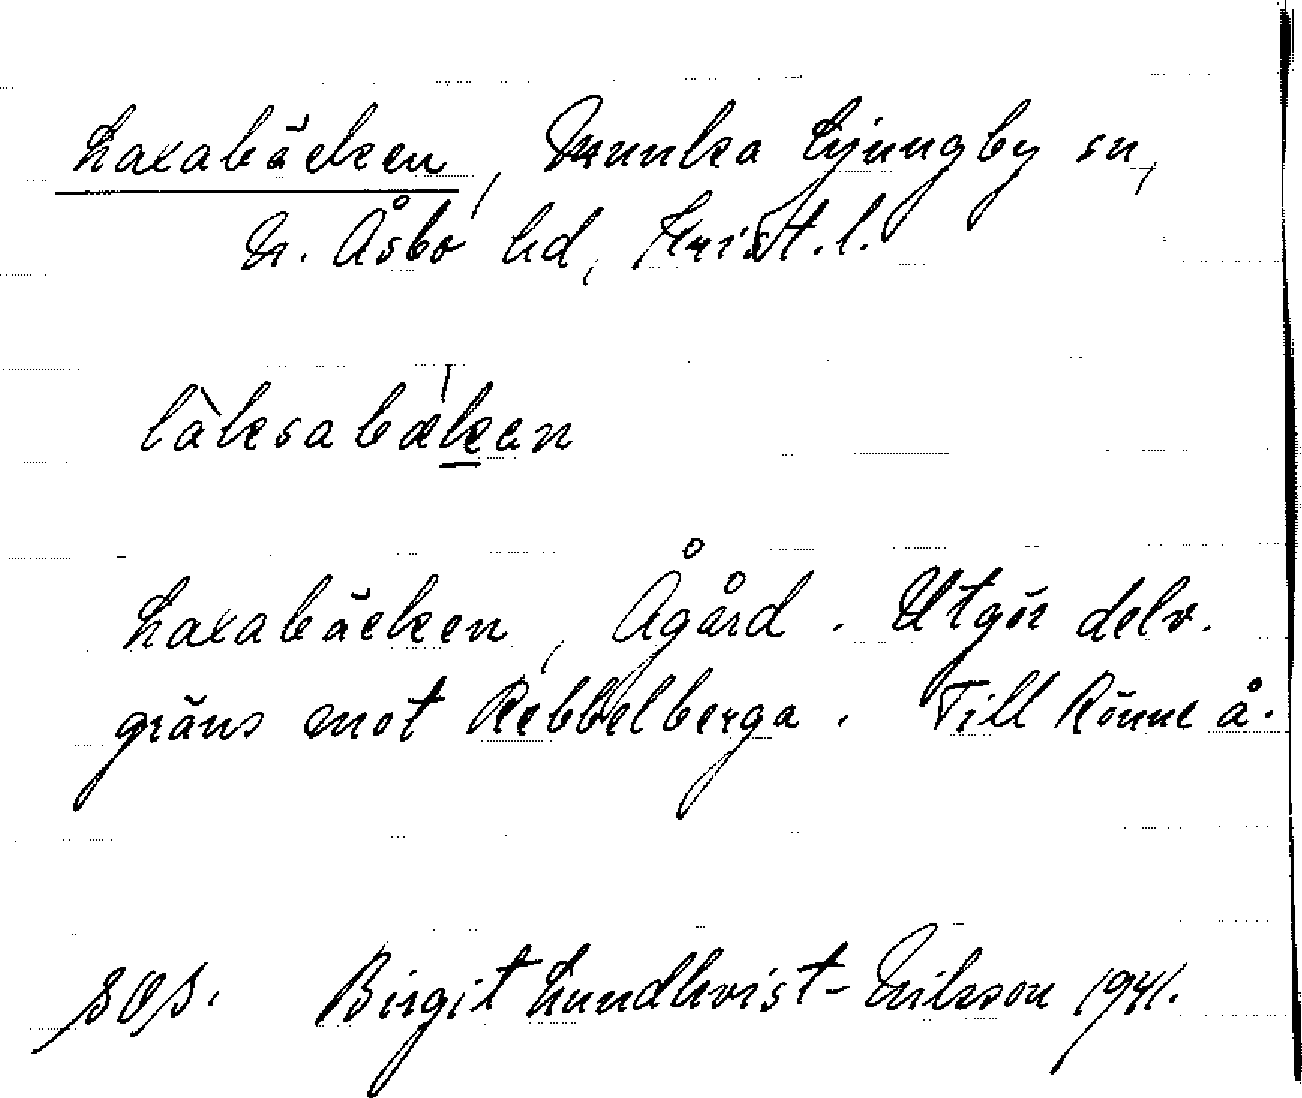 Laxabäcken, Munka Ljungby sn,
N. Åsbo hd, Krist. l.
làksabæ̀ken
Laxabäcken, Ågård. Utgör delv.
gräns mot Rebbelberga. Till Rönne å.
Birgit Lundkvist-Nilsson 1941.